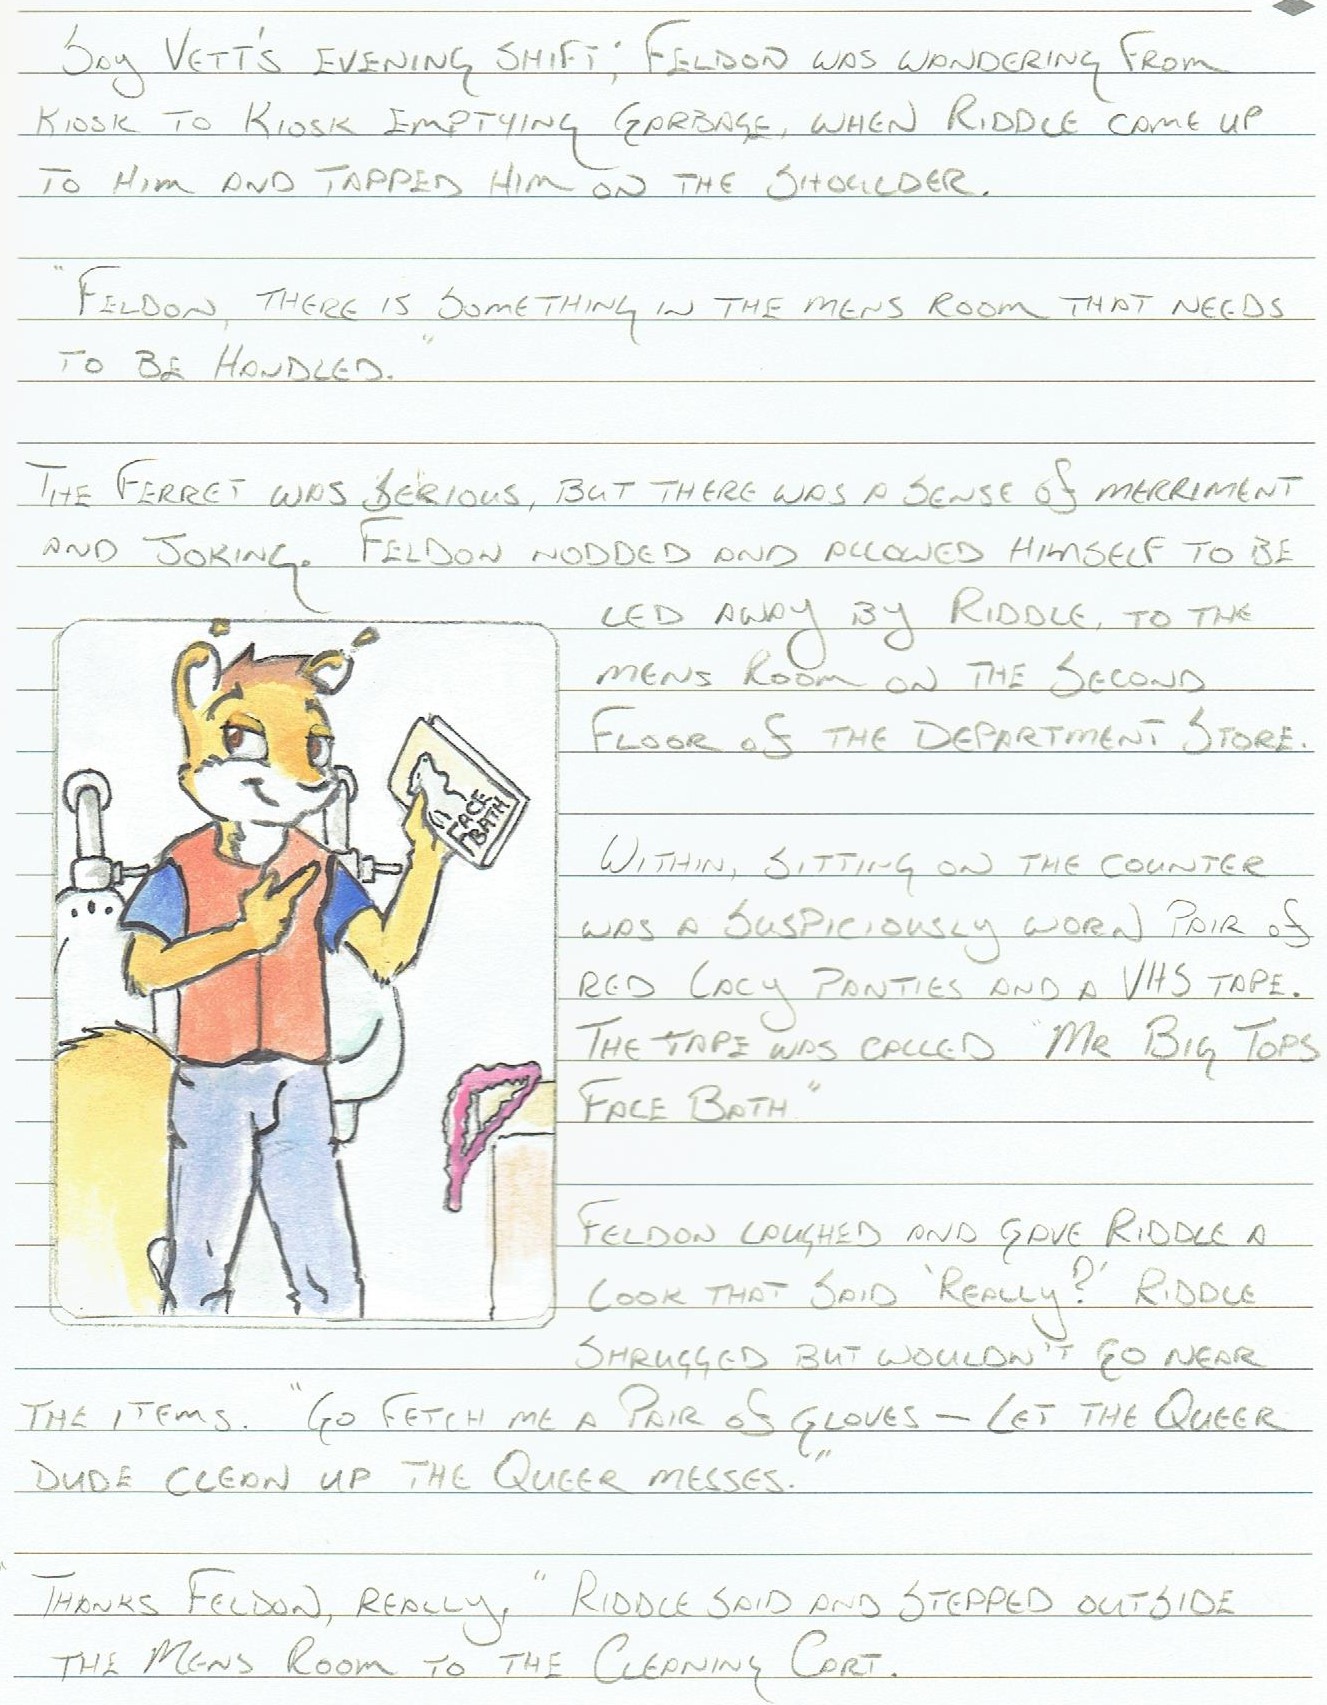 Soy Vett's evening shift; Feldon was wandering from
kiosk to kiosk emptying garbage, when Riddle came up
to him and tapped him on the shoulder.
"Feldon, there is something in the mens room that needs
to be handled."
The ferret was serious, but there was a sense of merriment
and joking. Feldon nodded and allowed himself to be
led away by Riddle, to the
mens room on the second
floor of the department store.
FACE
BATH
Within, sitting on the counter
was a suspiciously worn pair of
red lacy panties and a VHS tape.
The tape was called "Mr Big Tops
Face Bath"
Feldon laughed and gave Riddle a
look that said 'Really?' Riddle
shrugged but wouldn't go near
the items. "Go fetch me a pair of gloves — let the queer
dude clean up the queer messes."
"Thanks Feldon, really," Riddle said and stepped outside
the mens room to the cleaning cart.